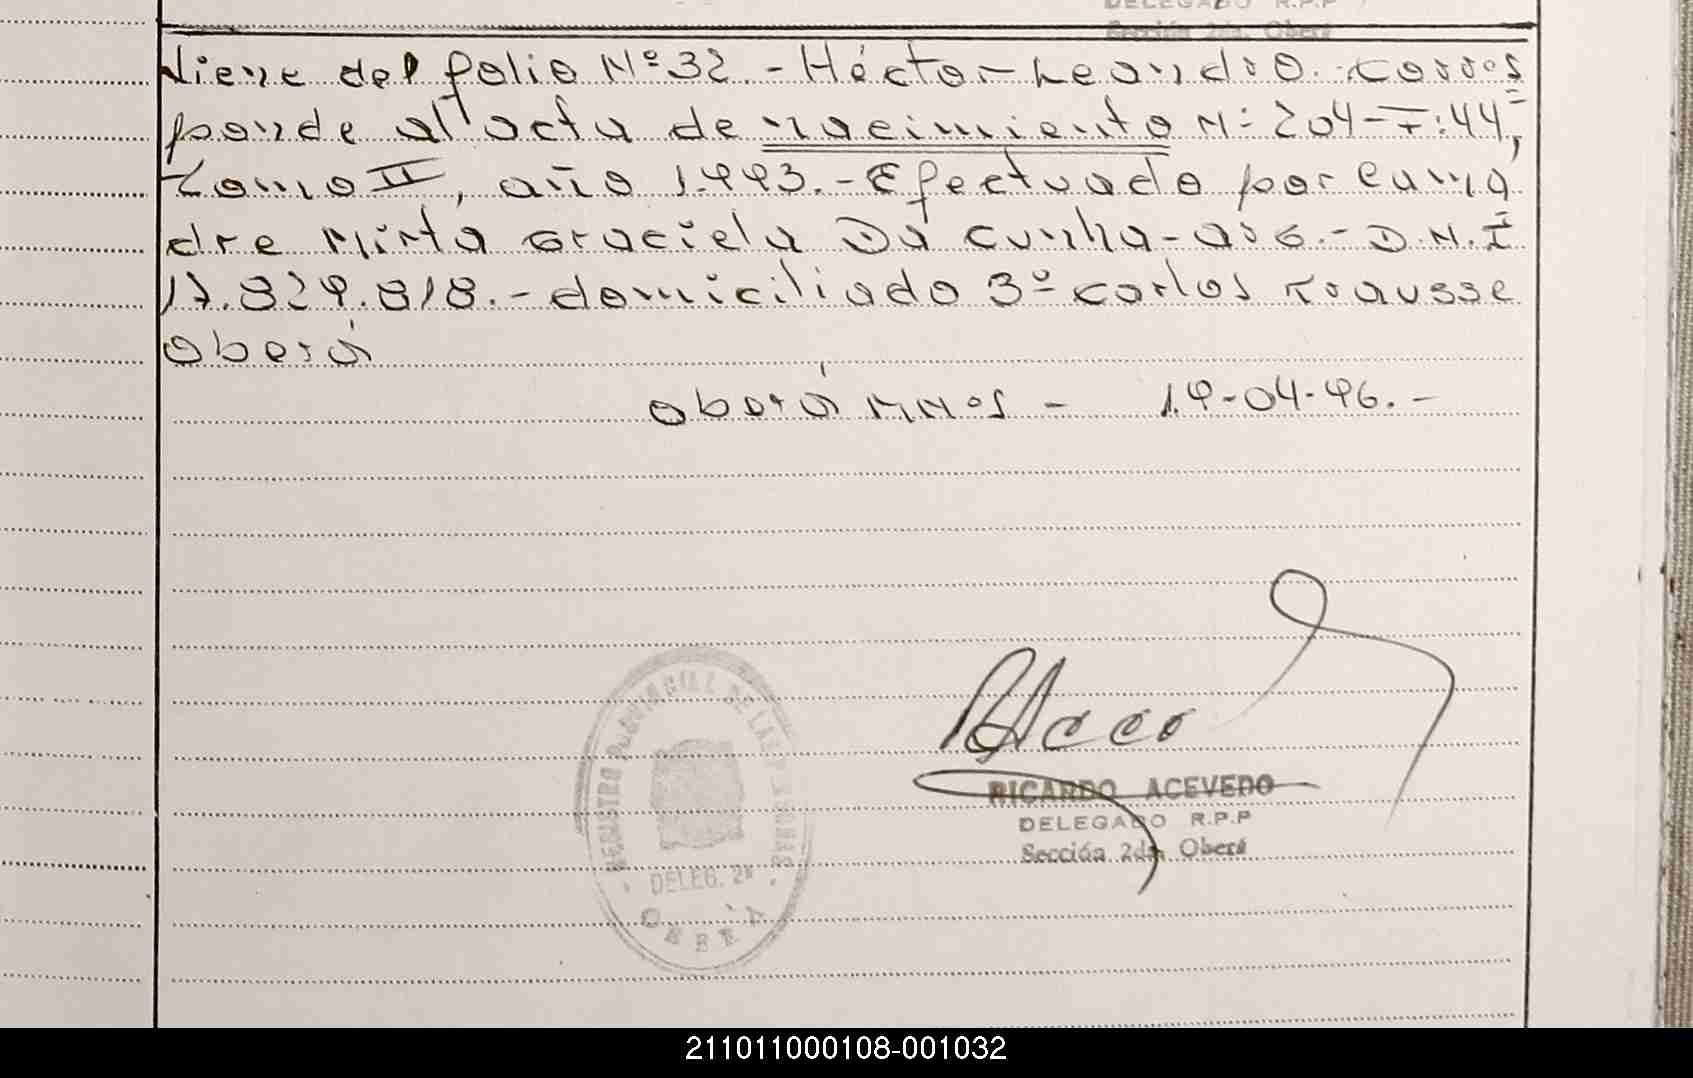 DELEGADO R.P.P
Sección 2da. Oberá
Viene del folio Nº 32 - Héctor Leandro. corres
ponde al acta de nacimiento Nº 204 - F: 44,
tomo II, año 1.993. - Efectuado por su ma
dre Mirta Graciela Da Cunha - arg. - D.N.I
17.829.818. - domiciliado 3º Carlos Krausse
Oberá
Oberá Mnes - 19-04-96. -
RICARDO ACEVEDO
DELEGADO R.P.P
Sección 2da. Oberá
REGISTRO PROVINCIAL DE LAS PERSONAS
DELEG. 2ª
OBERÁ
211011000108-001032